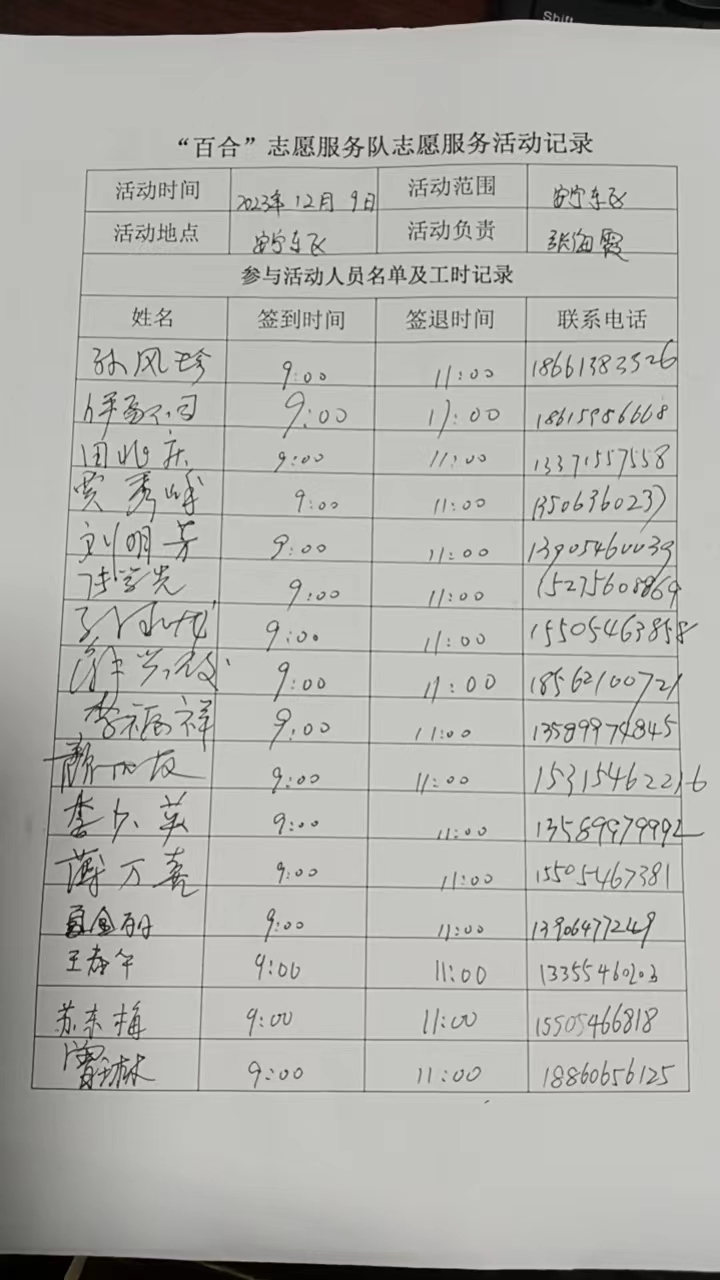 Shift
“百合”志愿服务队志愿服务活动记录
活动时间 2023年 12月 9日 活动范围 安宁东区
活动地点 安宁东区 活动负责 张海霞
参与活动人员名单及工时记录
姓名 签到时间 签退时间 联系电话
孙风珍 9:00 11:00 18661383526
9:00 11:00 18615986668
田兆庆 9:00 11:00 13371557558
贾秀峰 9:00 11:00 13506360237
刘明芳 9:00 11:00 13905460039
9:00 11:00 15275608869
9:00 11:00 15505463858
9:00 11:00 18562100721
李福祥 9:00 11:00 13589974845
9:00 11:00 15315462216
李少英 9:00 11:00 13589979992
薄万喜 9:00 11:00 15505467381
9:00 11:00 13906477249
王春午 9:00 11:00 13355460203
苏东梅 9:00 11:00 15505466818
9:00 11:00 18860656125